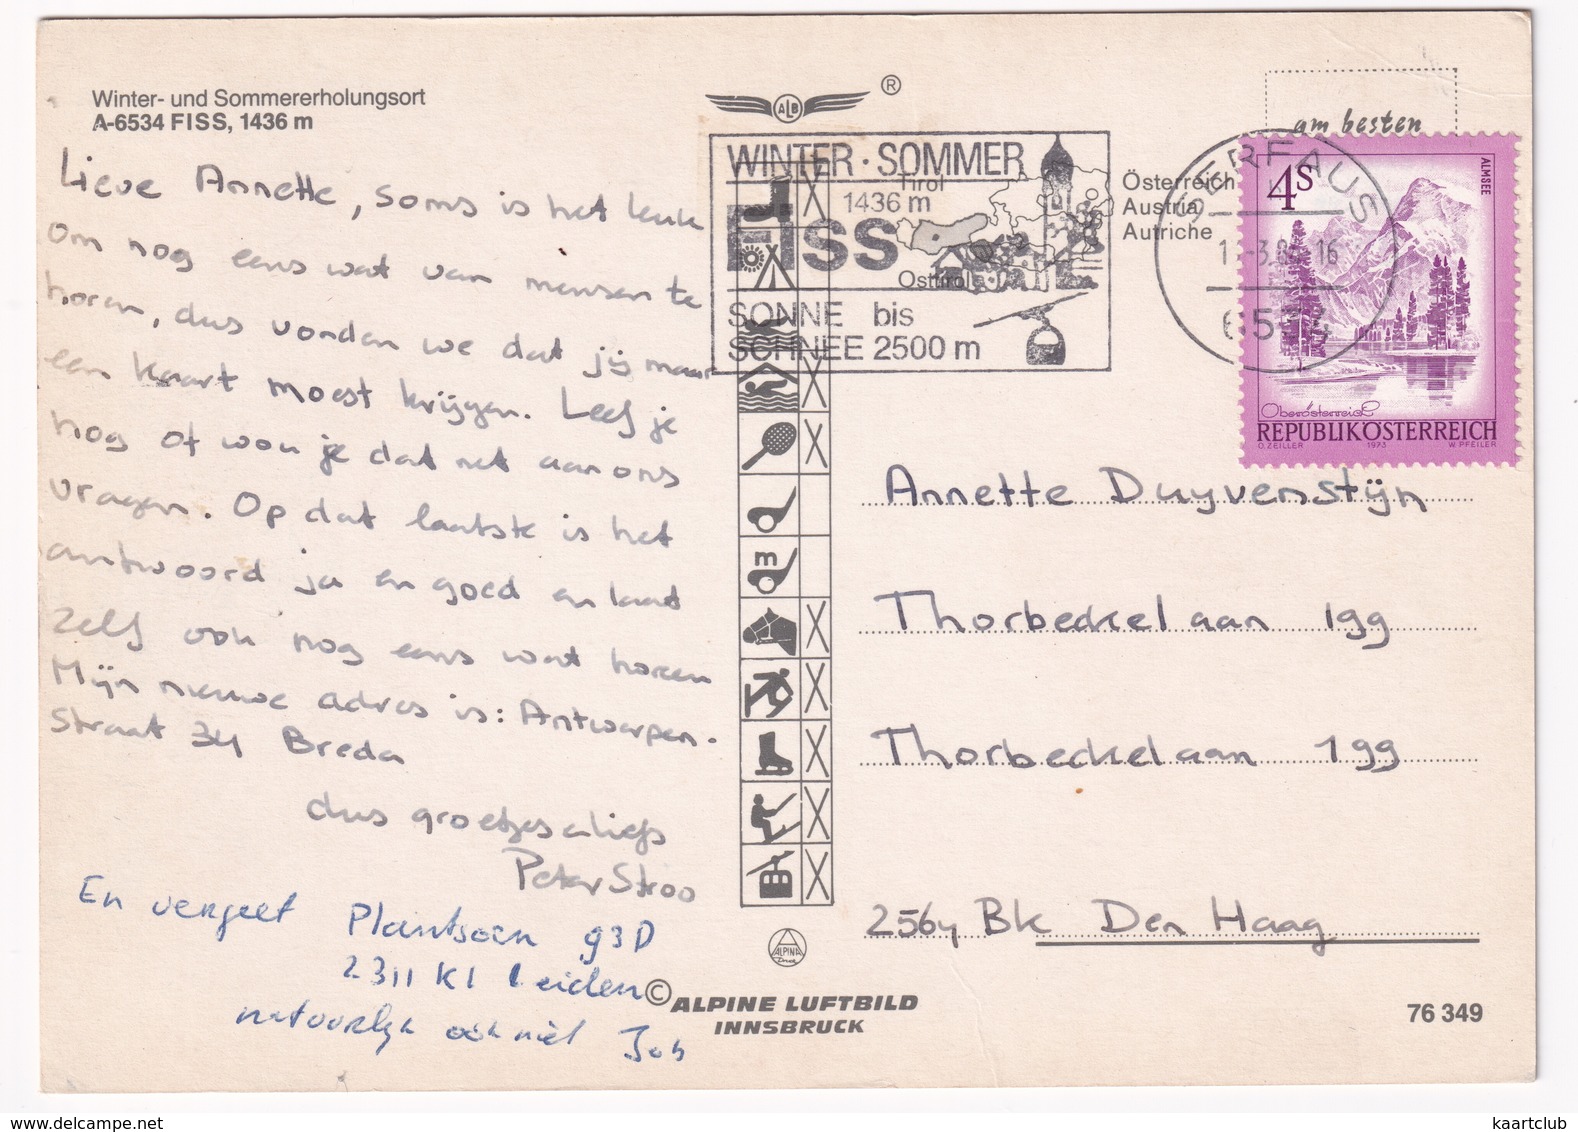 Winter- und Sommererholungsort
A-6534 FISS, 1436 m
Lieve Annette, soms is het leuk
om nog eens wat van mensen te
horen, dus vonden we dat jij maar
een kaart moest krijgen. Leef je
nog of wou je dat net aan ons
vragen. Op dat laatste is het
antwoord ja en goed en laat
zelf ook nog eens wat horen
Mijn nieuwe adres is: Antwerpen-
straat 34 Breda
dus groetjes en liefs
Peter Stroo
En vergeet Plantsoen 93D
2311 KL Leiden
natuurlijk ook niet Job
ALB ®
WINTER · SOMMER
Tirol
1436 m
FISS
Osttirol
SONNE bis
SCHNEE 2500 m
m
ALPINA
Druck
© ALPINE LUFTBILD
INNSBRUCK
Österreich
Austria
Autriche
am besten
SERFAUS
-3.8 16
6534
4S
ALMSEE
Oberösterreich
REPUBLIK ÖSTERREICH
O. ZEILLER 1973 W. PFEILER
Annette Duyvenstijn
Thorbeckelaan 199
Thorbeckelaan 199
2564 BK Den Haag
76 349
kaartclub